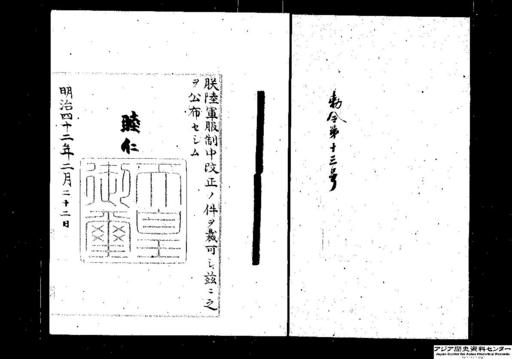 勅令第十三号
朕陸軍服制中改正ノ件ヲ裁可シ茲ニ之
ヲ公布セシム
睦仁
天皇御璽
明治四十二年二月二十二日
アジア歴史資料センター
Japan Center for Asian Historical Records